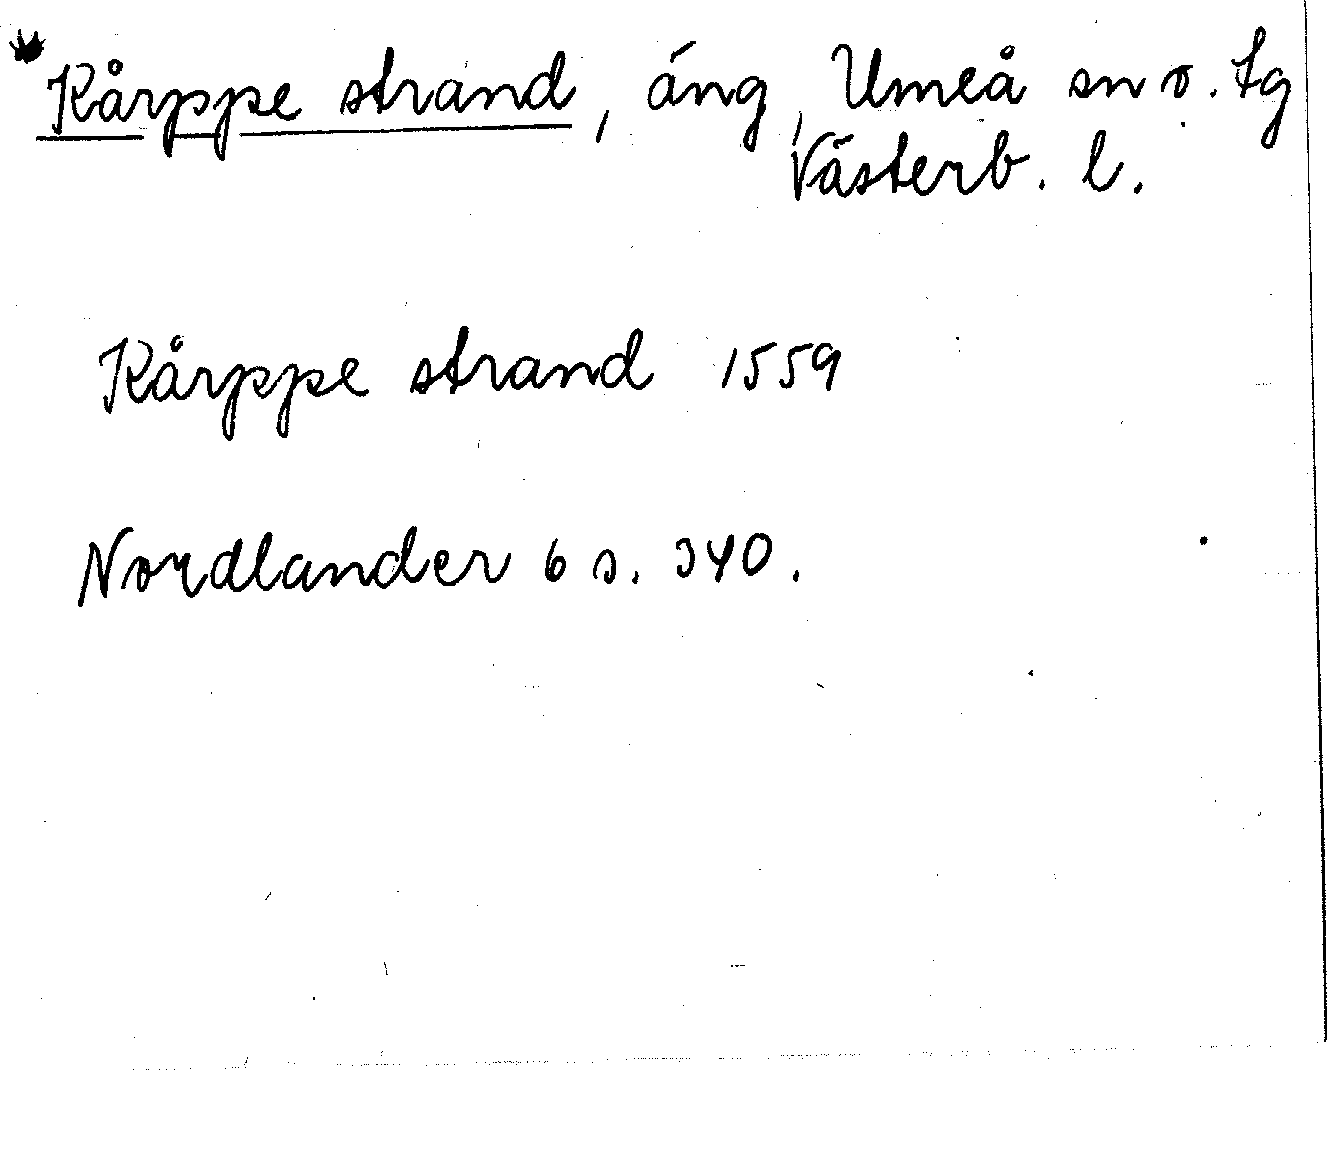 *Kårppe strand, äng, Umeå sn o. tg
Västerb. l.
Kårppe strand 1559
Nordlander 6 s. 340.